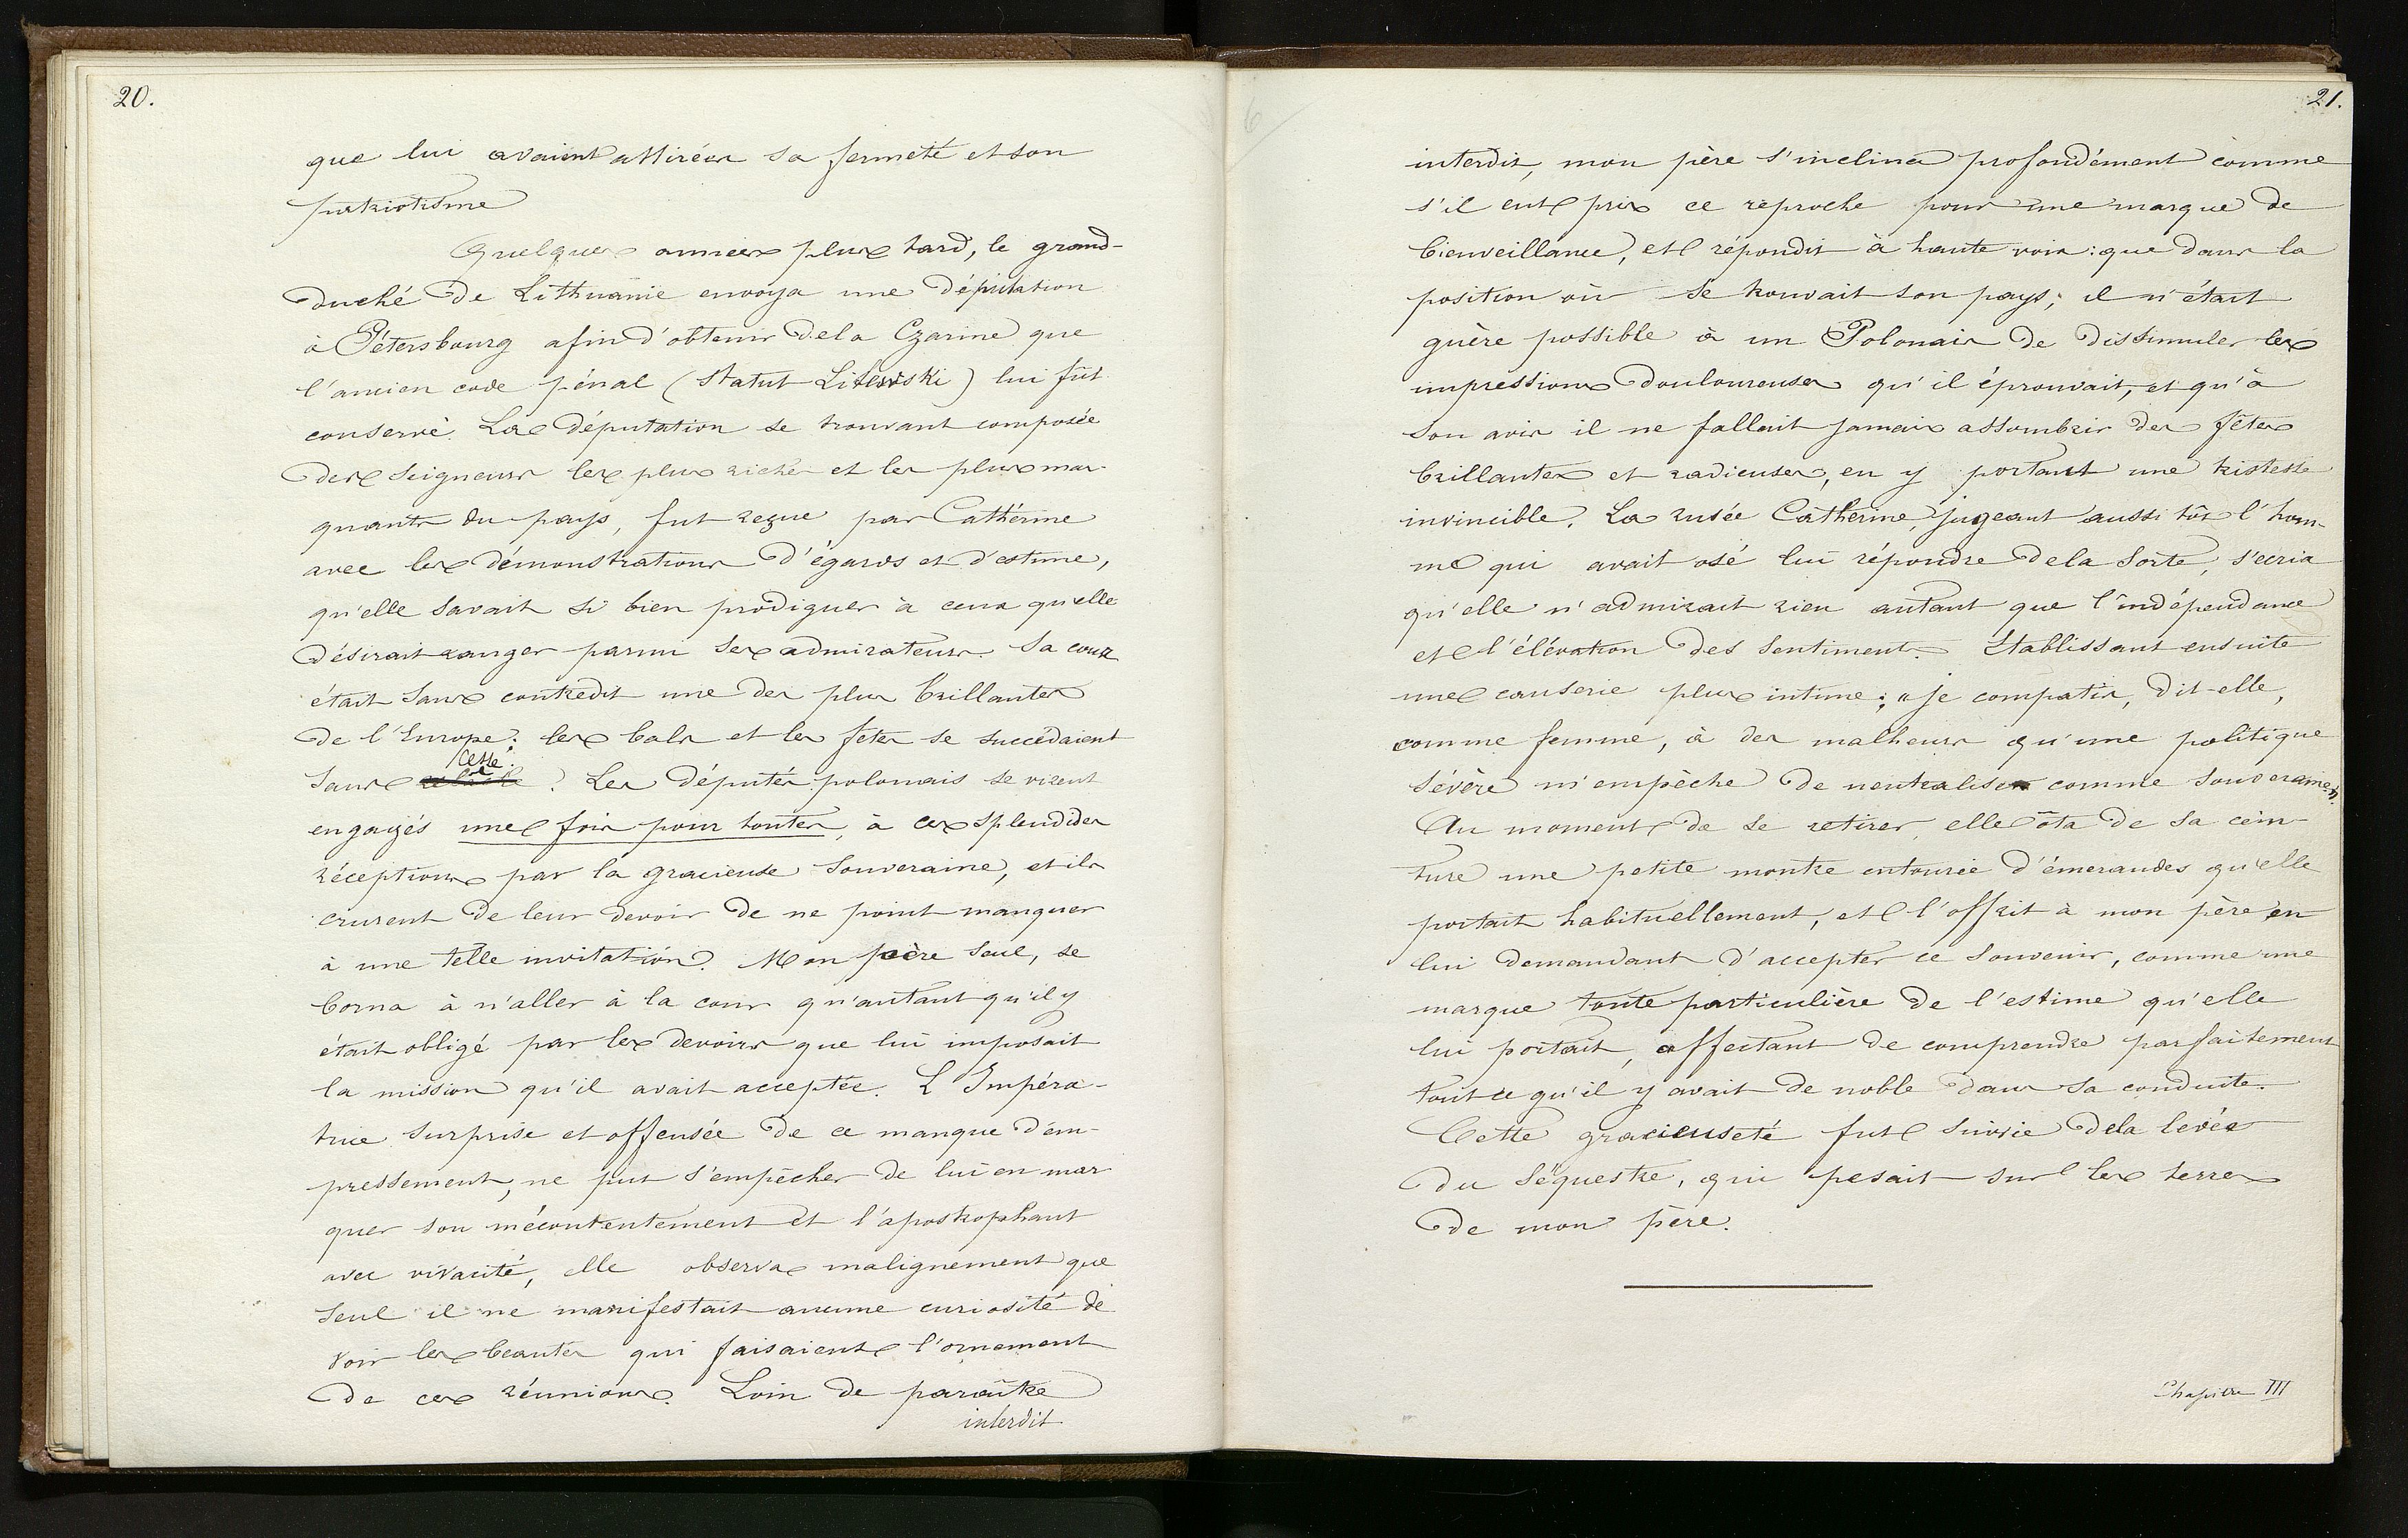 20.
que lui avaient attirées sa fermeté et son
patriotisme
Quelques années plus tard, le grand-
duché de Lithuanie envoya une députation
à Pétersbourg afin d'obtenir de la Czarine que
l'ancien code pénal (Statut Litewski) lui fût
conservé. La députation se trouvant composée
des seigneurs les plus riches et les plus mar-
quants du pays, fut reçue par Cathérine
avec les démonstrations d'égards et d'estime,
qu'elle savait si bien prodiguer à ceux qu'elle
désirait ranger parmi ses admirateurs. Sa cour
était sans contredit une des plus brillantes
de l'Europe; les bals et les fêtes se succédaient
cesse.
sans relâche. Les députés polonais se virent
engagés une fois pour toutes, à ces splendides
réceptions par la gracieuse Souveraine, et ils
crurent de leur devoir de ne point manquer
à une telle invitation. Mon père seul, se
borna à n'aller à la cour qu'autant qu'il y
était obligé par les devoirs que lui imposait
la mission qu'il avait acceptée. L'Impéra-
trice surprise et offensée de ce manque d'em-
pressement, ne put s'empêcher de lui en mar
quer son mécontentement et l'apostrophant
avec vivacité, elle observa malignement que
seul il ne manifestait aucune curiosité de
voir les beautés qui faisaient l'ornement
de ces réunions. Loin de paraître
interdit
21.
interdit, mon père s'inclina profondément comme
s'il eut pris ce reproche pour une marque de
bienveillance, et répondit à haute voix: que dans la
position où se trouvait son pays; il n'était
guère possible à un Polonais de dissimuler les
impressions douloureuses qu'il éprouvait, et qu'à
son avis il ne fallait jamais assombrir des fêtes
brillantes et radieuses, en y portant une tristesse
invincible. La rusée Catherine, jugeant aussi tôt l'hom-
me qui avait osé lui répondre de la sorte, s'ecria
qu'elle n'admirait rien autant que l'indépendance
et l'élévation des sentiments. Etablissant ensuite
une causerie plus intime; "je compatis, dit-elle,
comme femme, à des malheurs qu'une politique
sévère m'empêche de neutraliser comme souveraine".
Au moment de se retirer, elle ôta de sa cein-
ture une petite montre entourée d'émeraudes qu'elle
portait habituellement, et l'offrit à mon père en
lui demandant d'accepter ce souvenir, comme une
marque toute particulière de l'estime qu'elle
lui portait, affectant de comprendre parfaitement
tout ce qu'il y avait de noble dans sa conduite.
Cette gracieuseté fut suivie de la levée
du séquestre, qui pesait sur les terres
de mon père.
Chapitre III